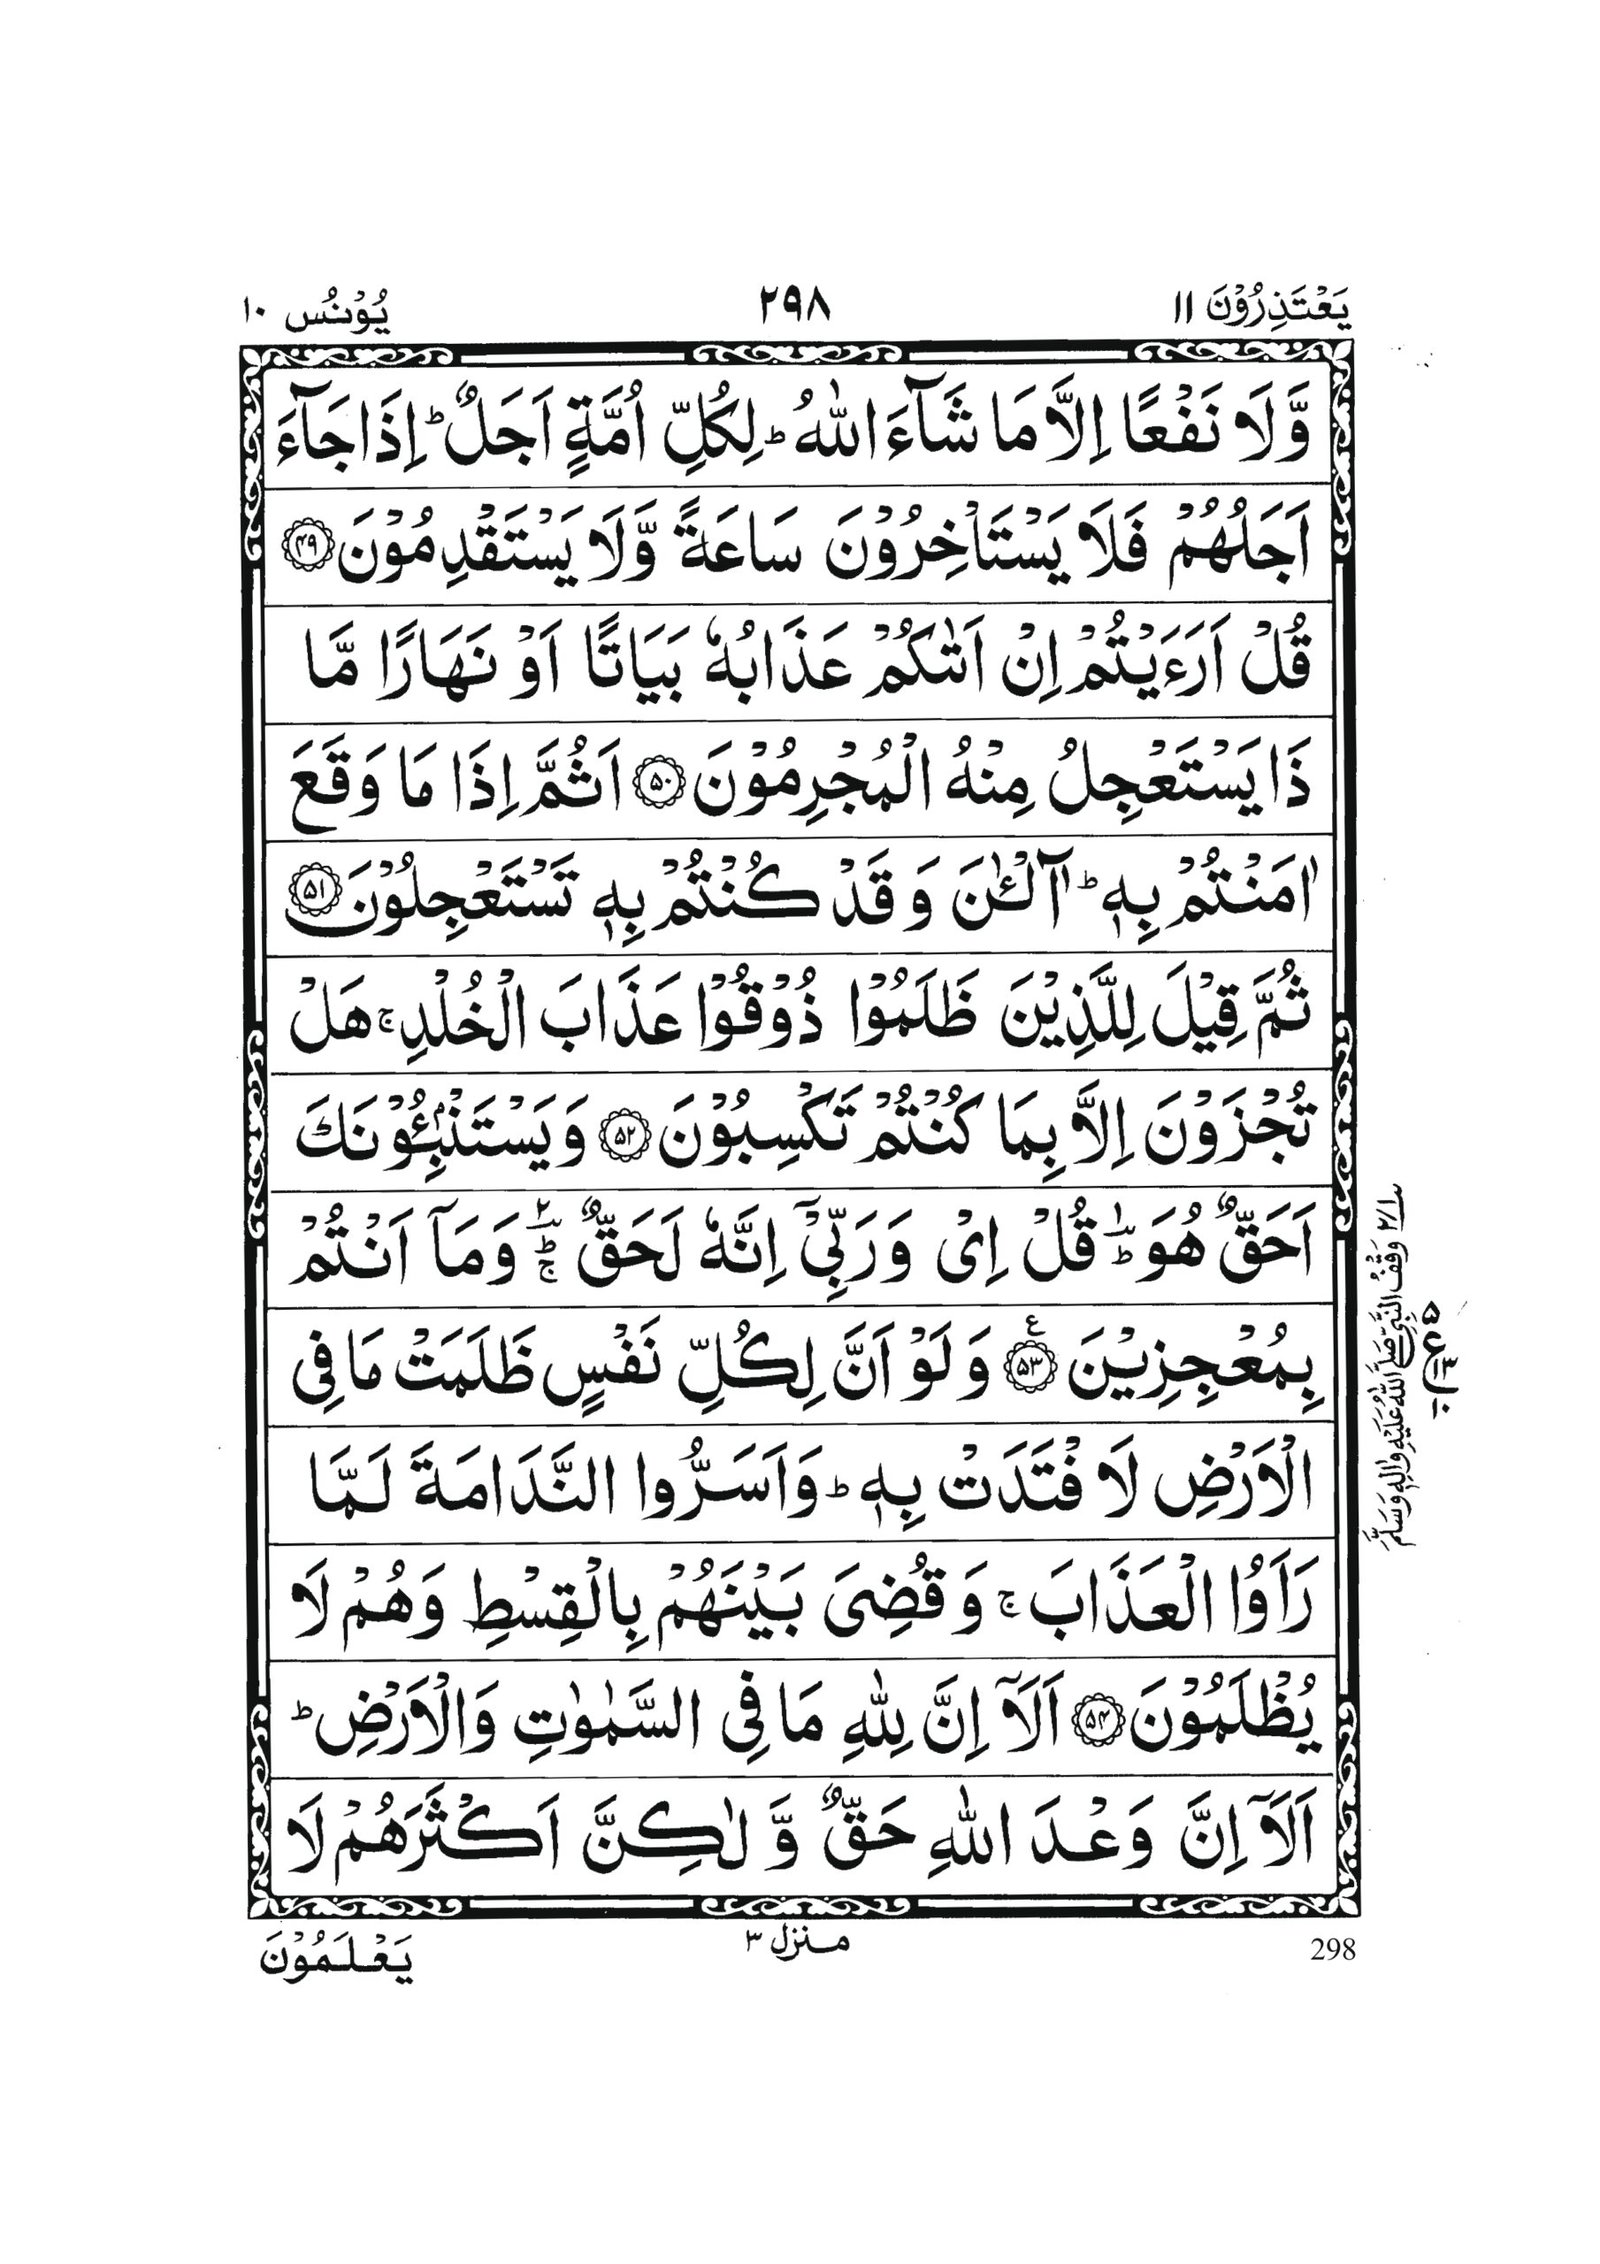 يَعْتَذِرُوْنَ ١١
٢٩٨
يُوْنُس ١٠
وَّلَا نَفْعًا اِلَّا مَا شَآءَ اللّٰهُ ؕ لِكُلِّ اُمَّةٍ اَجَلٌ ؕ اِذَا جَآءَ
اَجَلُهُمْ فَلَا يَسْتَاْخِرُوْنَ سَاعَةً وَّلَا يَسْتَقْدِمُوْنَ ﴿۴۹﴾
قُلْ اَرَءَيْتُمْ اِنْ اَتٰىكُمْ عَذَابُهٗ بَيَاتًا اَوْ نَهَارًا مَّا
ذَا يَسْتَعْجِلُ مِنْهُ الْمُجْرِمُوْنَ ﴿۵۰﴾ اَثُمَّ اِذَا مَا وَقَعَ
اٰمَنْتُمْ بِهٖ ؕ آٰلْـٰٔنَ وَ قَدْ كُنْتُمْ بِهٖ تَسْتَعْجِلُوْنَ ﴿۵۱﴾
ثُمَّ قِيْلَ لِلَّذِيْنَ ظَلَمُوْا ذُوْقُوْا عَذَابَ الْخُلْدِ ۚ هَلْ
تُجْزَوْنَ اِلَّا بِمَا كُنْتُمْ تَكْسِبُوْنَ ﴿۵۲﴾ وَيَسْتَنْۢبِـُٔوْنَكَ
اَحَقٌّ هُوَ ؕ قُلْ اِىْ وَرَبِّىْۤ اِنَّهٗ لَحَقٌّ ؕۚ وَمَاۤ اَنْتُمْ
بِمُعْجِزِيْنَ ﴿۵۳﴾ وَلَوْ اَنَّ لِكُلِّ نَفْسٍ ظَلَمَتْ مَا فِى
الْاَرْضِ لَا فْتَدَتْ بِهٖ ؕ وَاَسَرُّوا النَّدَامَةَ لَمَّا
رَاَوُا الْعَذَابَ ۚ وَقُضِىَ بَيْنَهُمْ بِالْقِسْطِ وَهُمْ لَا
يُظْلَمُوْنَ ﴿۵۴﴾ اَلَاۤ اِنَّ لِلّٰهِ مَا فِى السَّمٰوٰتِ وَالْاَرْضِ ؕ
اَلَاۤ اِنَّ وَعْدَ اللّٰهِ حَقٌّ وَّ لٰكِنَّ اَكْثَرَهُمْ لَا
يَعْلَمُوْنَ
منزل ٣
298
وَقْفُ النَّبِىِّ صَلَّى اللّٰهُ عَلَيْهِ وَاٰلِهٖ وَسَلَّمَ